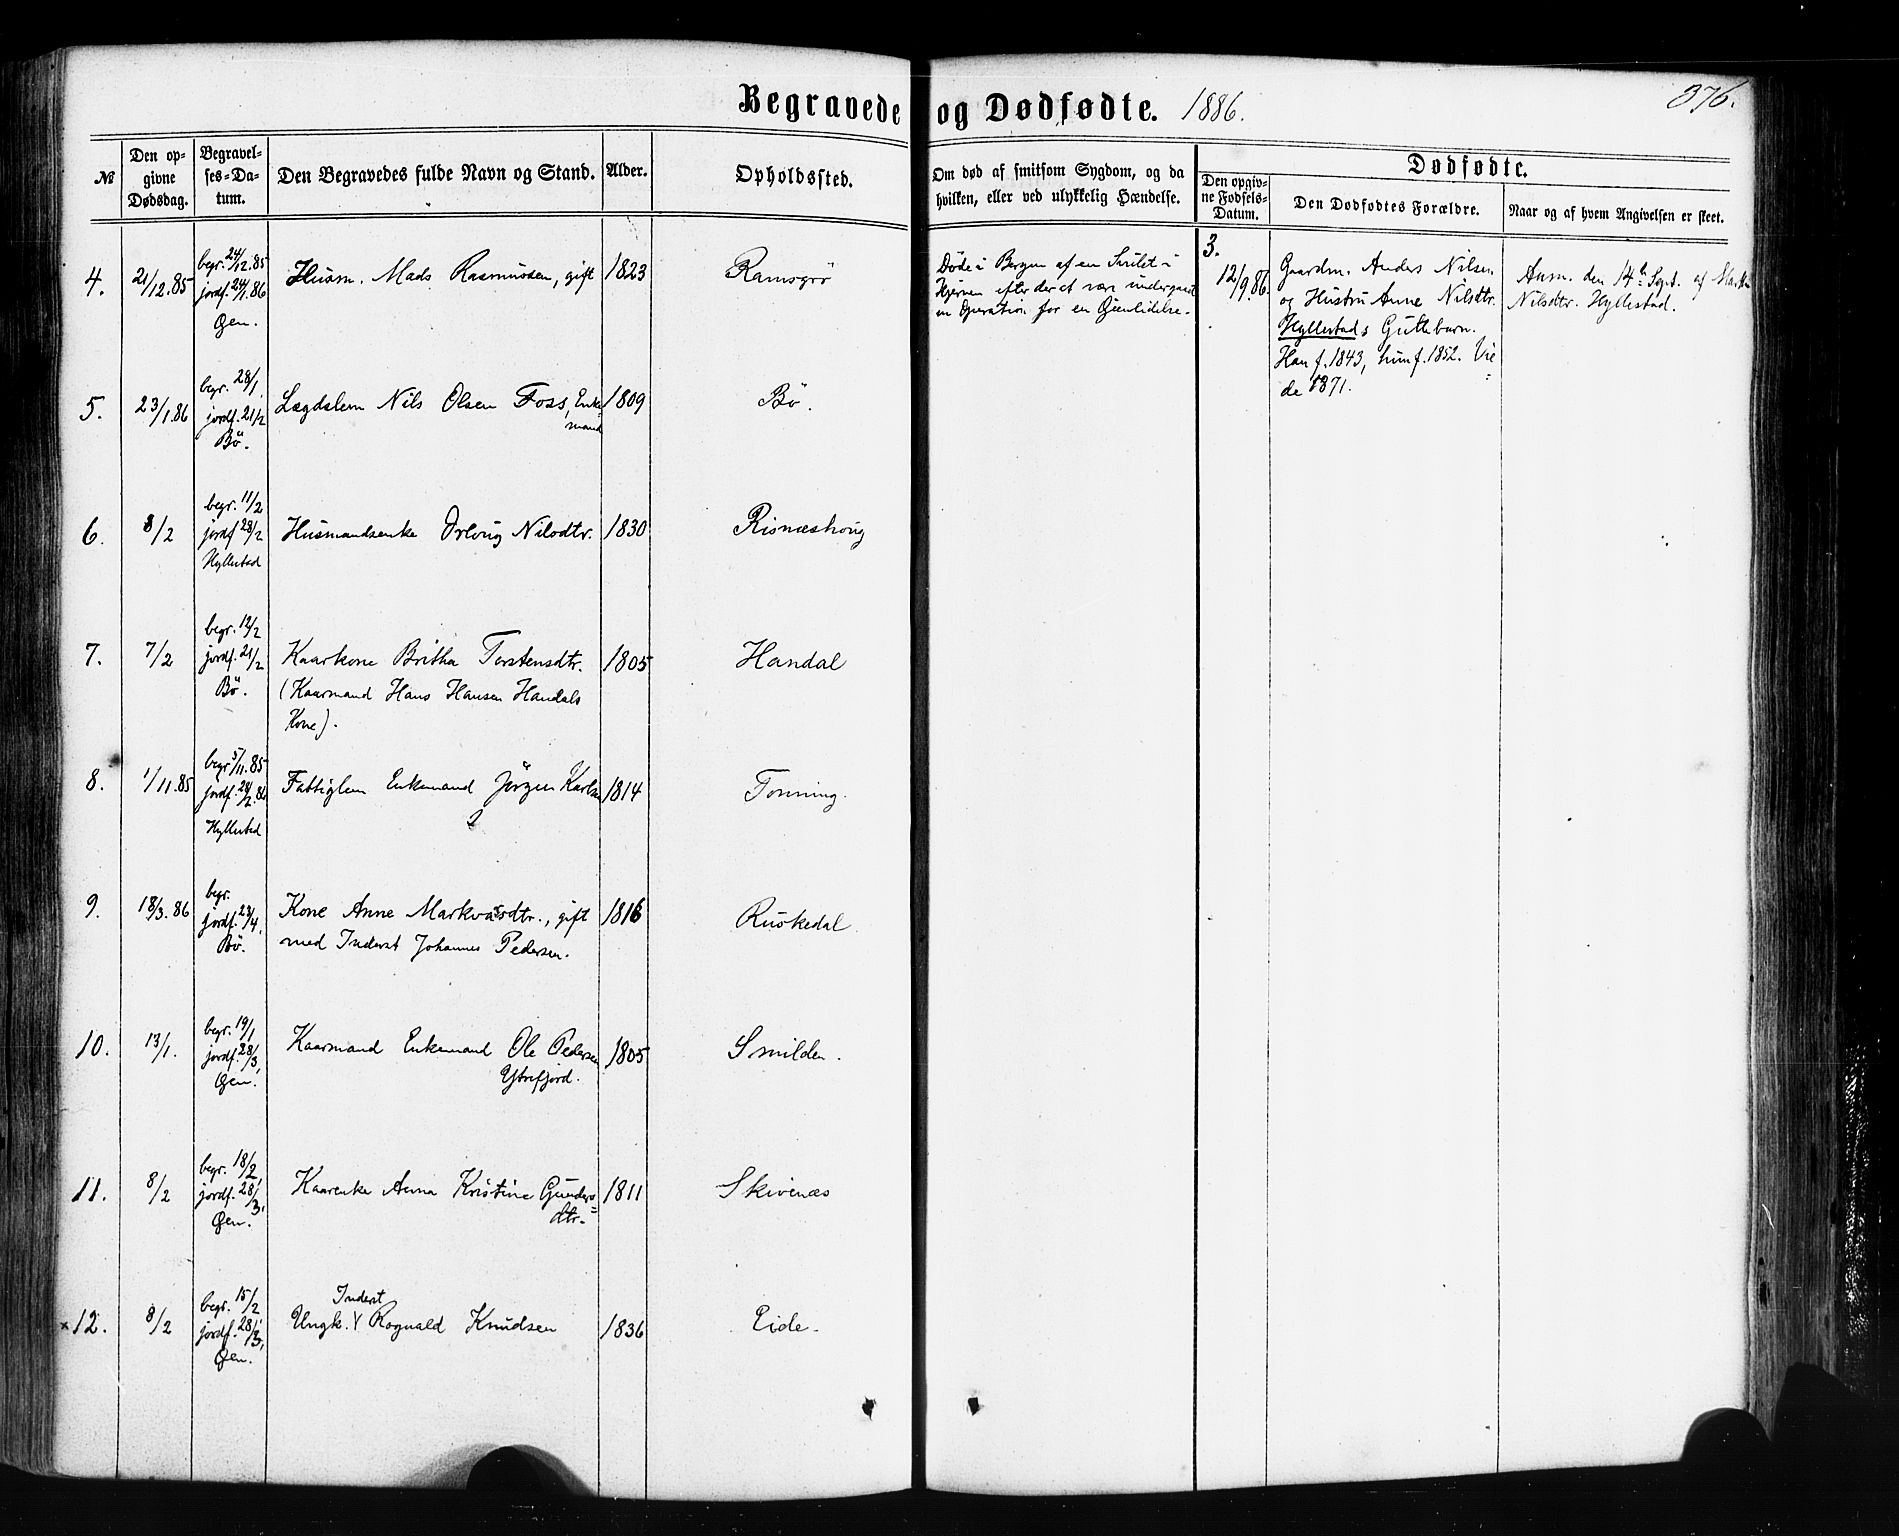 Begravede og Dødfødte. 1886.
376.
№
Den op-
givne
Dødsdag.
Begravel-
ses-Da-
tum.
Den Begravedes fulde Navn og Stand.
Alder.
Opholdssted.
Om død af smitsom Sygdom, og da
hvilken, eller ved ulykkelig Hændelse.
Dødfødte.
Den opgiv-
ne Fødsels-
Datum.
Den Dødfødtes Forældre.
Naar og af hvem Angivelsen er skeet.
4.
21/12.85
begr. 24/12.85
jordf. 24/1.86
Øen.
Husm. Mads Rasmussen, gift
1823
Ramsgrö
Döde i Bergen af en Svulst i
Hjernen efter der at være undergaaet
en Operation for en Öienlidelse.
3.
12/9.86.
Gaardm. Anders Nilsen
og Hustru Anne Nilsdtr.
Hyllestads Guttebarn.
Han f. 1843, hun f. 1852. Vi-
de 1871.
Anm. den 14de Sept. af
Nilsdtr. Hyllestad.
5.
23/1.86
begr. 28/1.
jordf. 21/2
Bö.
Lægdslem Nils Olsen Foss, Enke-
mand
1809
Bö.
6.
8/2
begr. 11/2
jordf 28/2
Hyllestad
Husmandsenke Orloug Nilsdtr.
1830
Risnæshoug
7.
7/2
begr. 12/2
jordf. 21/2
Bö.
Kaarkone Britha Torstensdtr.
(Kaarmand Hans Hansen Handals
Kone).
1805
Handal
8.
1/11.85
begr 5/11.85
jordf. 28/2.86
Hyllestad
Fattiglem Enkemand Jörgen Karlsen
1814
Tonning.
9.
18/3.86
begr.
jordf. 23/4.
Bö.
Kone Anne Markvasdtr., gift
med Inderst Johannes Pedersen.
1816
Ruskedal
10.
13/1.
begr. 19/1
jordf. 28/3,
Øen.
Kaarmand Enkemand Ole Pedersen
Ytrefjord.
1805
Smilden.
11.
8/2
begr. 18/2,
jordf. 28/3,
Øen.
Kaarenke Anna Kristine Gunders-
dtr.
1811
Skivenæs
x12.
8/2
begr. 15/2
jordf. 28/3,
Øen.
Inderst
Ungk. Rognald Knudsen
1836
Eide.